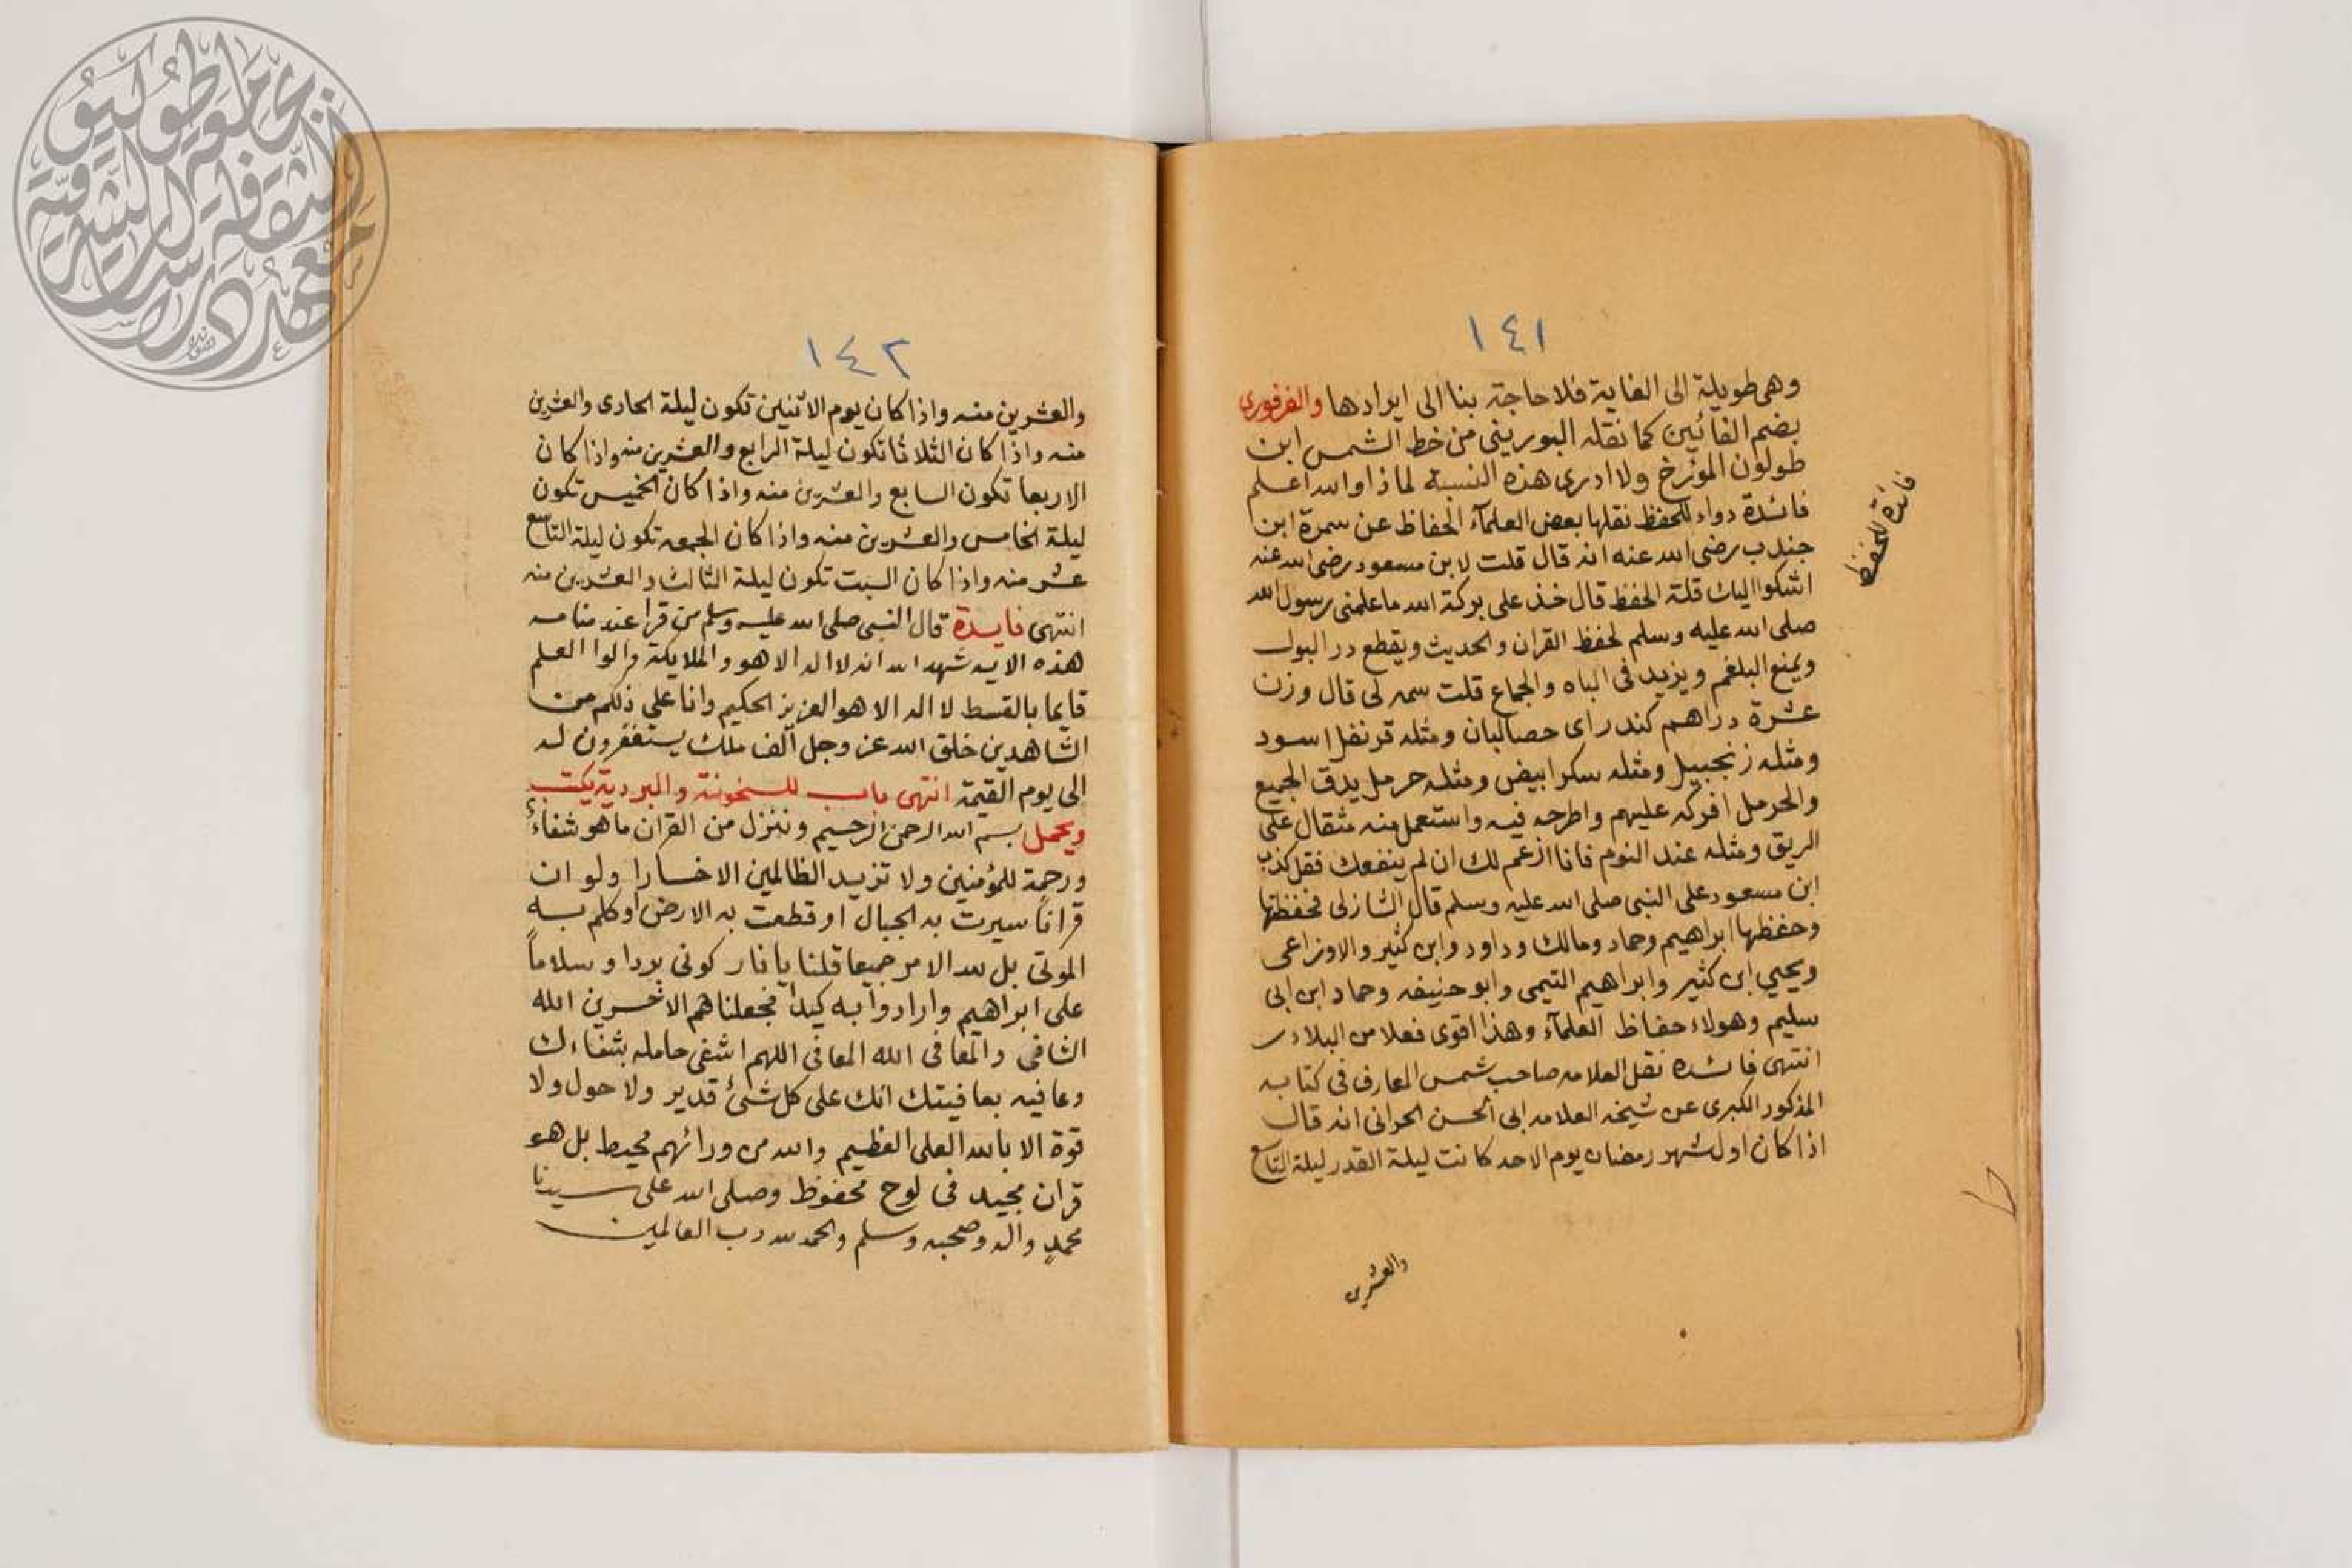 ١٤١
وهى طويلة الى الغاية فلا حاجة بنا الى ايرادها والفرفورى
بضم الفائين كما نقله البورينى من خط الشمس ابن
طولون المؤرخ ولا ادرى هذه النسبة لماذا والله اعلم
فائدة دواء للحفظ نقلها بعض العلمآء الحفاظ عن سمرة ابن
جندب رضى الله عنه انه قال قلت لابن مسعود رضى الله عنه
اشكوا اليك قلة الحفظ قال خذ على بركة الله ما علمنى رسول الله
صلى الله عليه وسلم لحفظ القران والحديث ويقطع در البول
ويمنع البلغم ويزيد فى الباه والجماع قلت سمه لى قال وزن
عشرة دراهم كندر اى حصالبان ومثله قرنفل اسود
ومثله زنجبيل ومثله سكر ابيض ومثله حرمل يدق الجميع
والحرمل افركه عليهم واطرحه فيه واستعمل منه مثقال على
الريق ومثله عند النوم فانا ازعم لك ان لم ينفعك فقل كذب
ابن مسعود على النبى صلى الله عليه وسلم قال الشازلى فحفظتها
وحفظها ابراهيم وحماد ومالك وداود وابن كثير والاوزاعى
ويحيي ابن كثير وابراهيم التيمى وابو حنيفه وحماد ابن ابى
سليم وهولاء حفاظ العلمآء وهذا اقوى فعلا من البلادر
انتهى فائده نقل العلامه صاحب شمس المعارف فى كتابه
المذكور الكبرى عن شيخه العلامه ابى الحسن الحرانى انه قال
اذا كان اول شهر رمضان يوم الاحد كانت ليلة القدر ليلة التاسع
والعشرين
فائدة للحفظ
١٤٢
والعشرين منه واذا كان يوم الاثنين تكون ليلة الحادى والعشرين
منه واذا كان الثلاثا تكون ليلة الرابع والعشرين منه واذا كان
الاربعا تكون السابع والعشرين منه واذا كان الخميس تكون
ليلة الخامس والعشرين منه واذا كان الجمعه تكون ليلة التاسع
عشر منه واذا كان السبت تكون ليلة الثالث والعشرين منه
انتهى فايدة قال النبى صلى الله عليه وسلم من قرا عند منامه
هذه الايه شهد الله انه لا اله الا هو والملايكة والوا العلم
قايما بالقسط لا اله الا هو العزيز الحكيم وانا على ذلكم من
الشاهدين خلق الله عز وجل الف ملك يستغفرون له
الى يوم القيمة انتهى باب للسخونة والبردية يكتب
ويحمل بسم الله الرحمن الرحيم وننزل من القران ما هو شفاءٌ
ورحمة للمؤمنين ولا تزيد الظالمين الا خسارا ولو ان
قراناً سيرت به الجبال او قطعت به الارض او كلم به
الموتى بل لله الامر جميعا قلنا يا نار كونى بردا وسلاماً
على ابراهيم وارادوا به كيداً فجعلناهم الاخسرين الله
الشافى والمعافى الله المعافى اللهم اشفى حامله بشفاءك
وعافيه بعافيتك انك على كل شئ قدير ولا حول ولا
قوة الا بالله العلى العظيم والله من ورائهم محيط بل هو
قران مجيد فى لوح محفوظ وصلى الله على سيدنا
محمدٍ واله وصحبه وسلم والحمد لله رب العالمين
معهد الثقافة والدراسات الشرقية
جامعة طوكيو